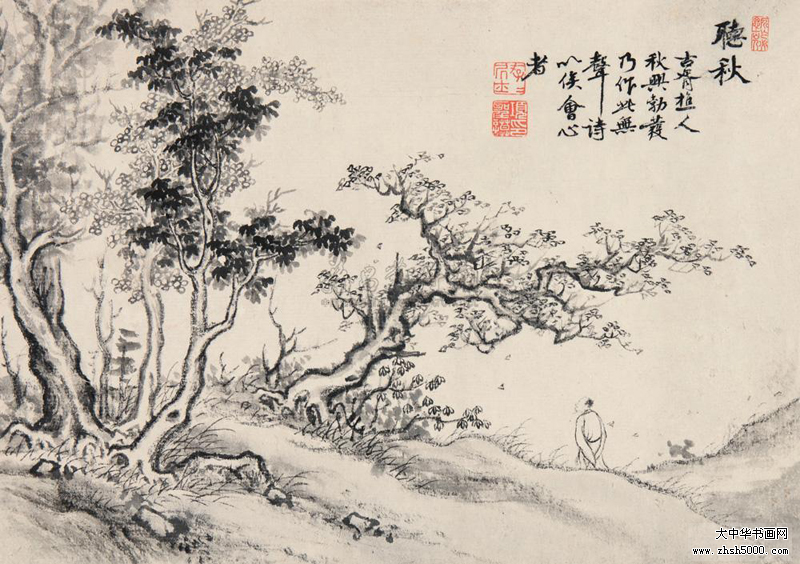 聽秋
古胥樵人
秋興勃發
乃作此無
聲詩
以俟會心
者
大中华书画网
www.zhsh5000.com